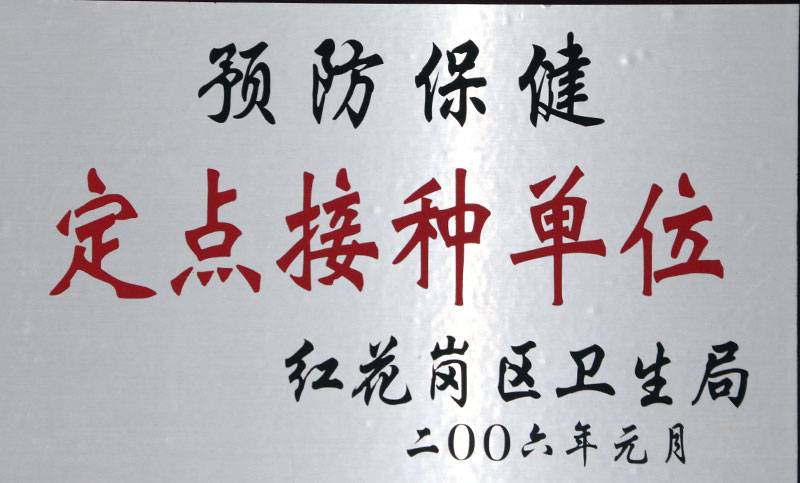 预防保健
定点接种单位
红花岗区卫生局
二00六年元月